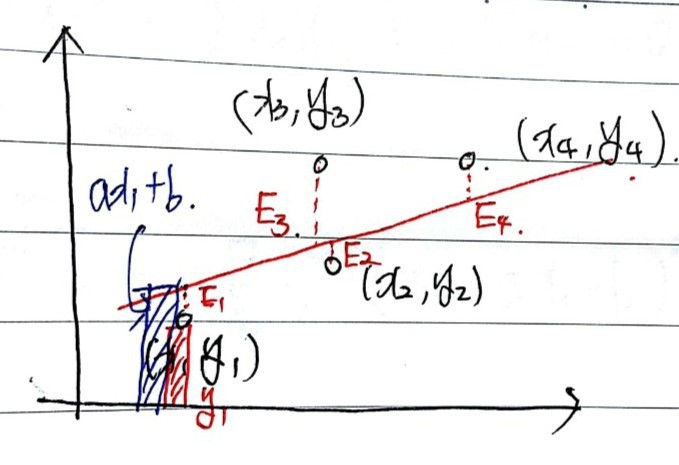 (x₃, y₃)
(x₄, y₄).
ax₁+b.
E₃.
E₄.
E₂
(x₂, y₂)
E₁
(x₁, y₁)
y₁